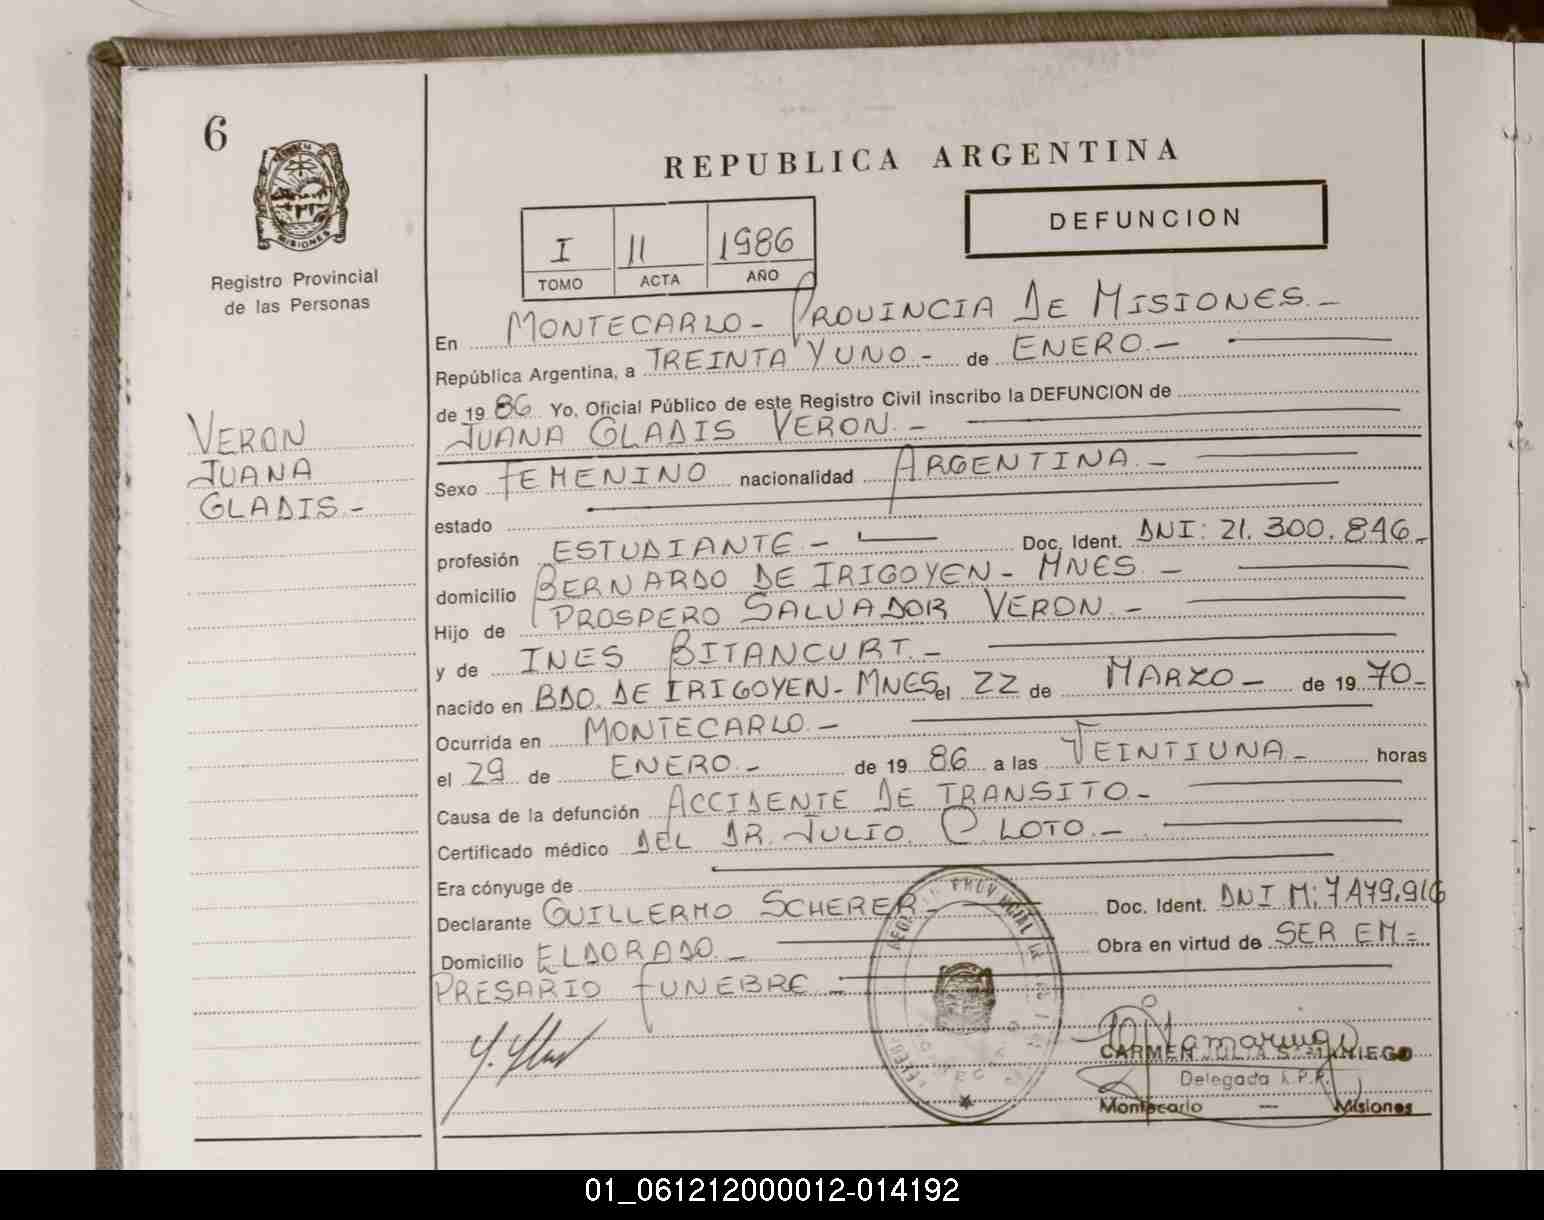 6
MISIONES
Registro Provincial
de las Personas
VERON
JUANA
GLADIS.-
REPUBLICA ARGENTINA
I 11 1986
TOMO ACTA AÑO
DEFUNCION
En MONTECARLO - PROVINCIA DE MISIONES.-
República Argentina, a TREINTA Y UNO.- de ENERO.-
de 19 86 Yo, Oficial Público de este Registro Civil inscribo la DEFUNCION de
JUANA GLADIS VERON.-
Sexo FEMENINO nacionalidad ARGENTINA.-
estado
profesión ESTUDIANTE.- Doc. Ident. DNI: 21.300.846.-
domicilio BERNARDO DE IRIGOYEN - MNES.-
Hijo de PROSPERO SALVADOR VERON.-
y de INES BITANCURT.-
nacido en BDO. DE IRIGOYEN - MNES el 22 de MARZO - de 19 70 -
Ocurrida en MONTECARLO.-
el 29 de ENERO.- de 19 86 a las VEINTIUNA - horas
Causa de la defunción ACCIDENTE DE TRANSITO.-
Certificado médico DEL DR. JULIO. C. LOTO.-
Era cónyuge de
Declarante GUILLERMO SCHERER - Doc. Ident. DNI M: 7.479.916
Domicilio ELDORADO - Obra en virtud de SER EM=
PRESARIO FUNEBRE.-
CARMEN JULIA SAMANIEGO
Delegada R.P.P.
Montecarlo — Misiones
01_061212000012-014192